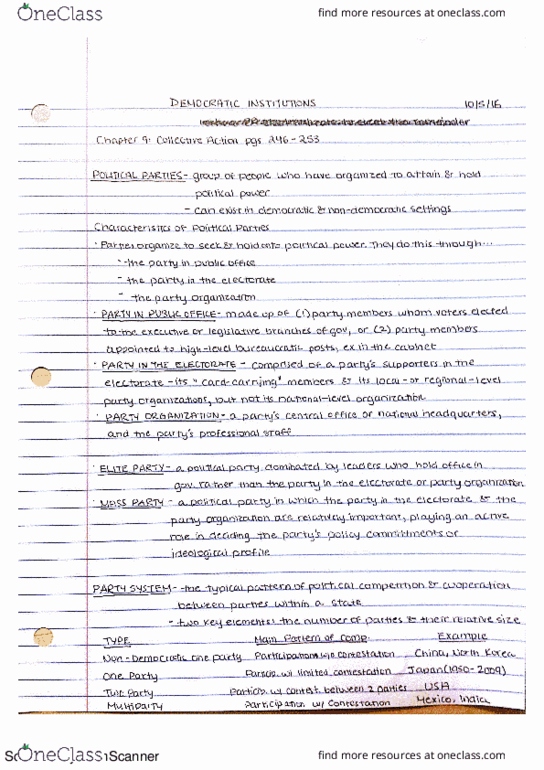 OneClass
find more resources at oneclass.com
DEMOCRATIC INSTITUTIONS 10/5/16
Chapter 9: Collective Action pgs 246-253
POLITICAL PARTIES- group of people who have organized to attain & hold
political power
- can exist in democratic & non-democratic settings
Characteristics of Political Parties
· Parties organize to seek & hold onto political power. They do this through...
- the party in public office
- the party in the electorate
- the party organization
· PARTY IN PUBLIC OFFICE- made up of (1) party members whom voters elected
to the executive or legislative branches of gov, or (2) party members
appointed to high-level bureaucratic posts, ex in the cabinet
· PARTY IN THE ELECTORATE - comprised of a party's supporters in the
electorate - its "card-carrying" members & its local- or regional-level
party organizations, but not its national-level organization
· PARTY ORGANIZATION- a party's central office or national headquarters,
and the party's professional staff
· ELITE PARTY- a political party dominated by leaders who hold office in
gov. rather than the party in the electorate or party organization
· MASS PARTY- a political party in which the party in the electorate & the
party organization are relatively important, playing an active
role in deciding the party's policy commitments or
ideological profile
PARTY SYSTEM- the typical pattern of political competition & cooperation
between parties within a state
- two key elements: the number of parties & their relative size
TYPE Main Pattern of Comp. Example
Non-Democratic one party Participation w/o contestation China, North Korea
One Party Particip. w/ limited contestation Japan (1950-2009)
Two Party Particip. w/ contest. between 2 parties USA
Multiparty Participation w/ Contestation Mexico, India
OneClass
Scanner
find more resources at oneclass.com